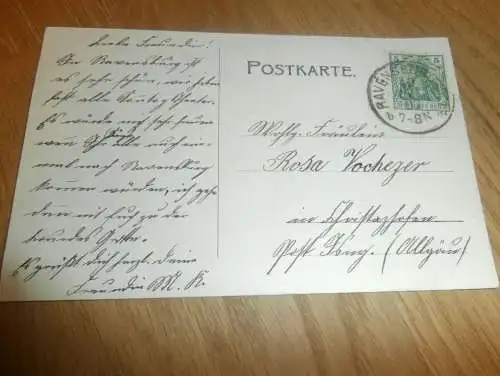 Liebe Freundin!
In Ravensburg ist
es sehr schön, wir haben
fast alle Tage Theater.
Es würde mich sehr freuen
wenn Sie auch ein-
mal nach Ravensburg
kommen würden, ich gehe
dann mit Euch zu der
Es grüßt dich herzl. deine
Freundin M. K.
POSTKARTE.
5 5
RAVEN
7-8N
Wohlg. Fräulein
Rosa Vochezer
in Christazhofen
Post Isny. (Allgäu)